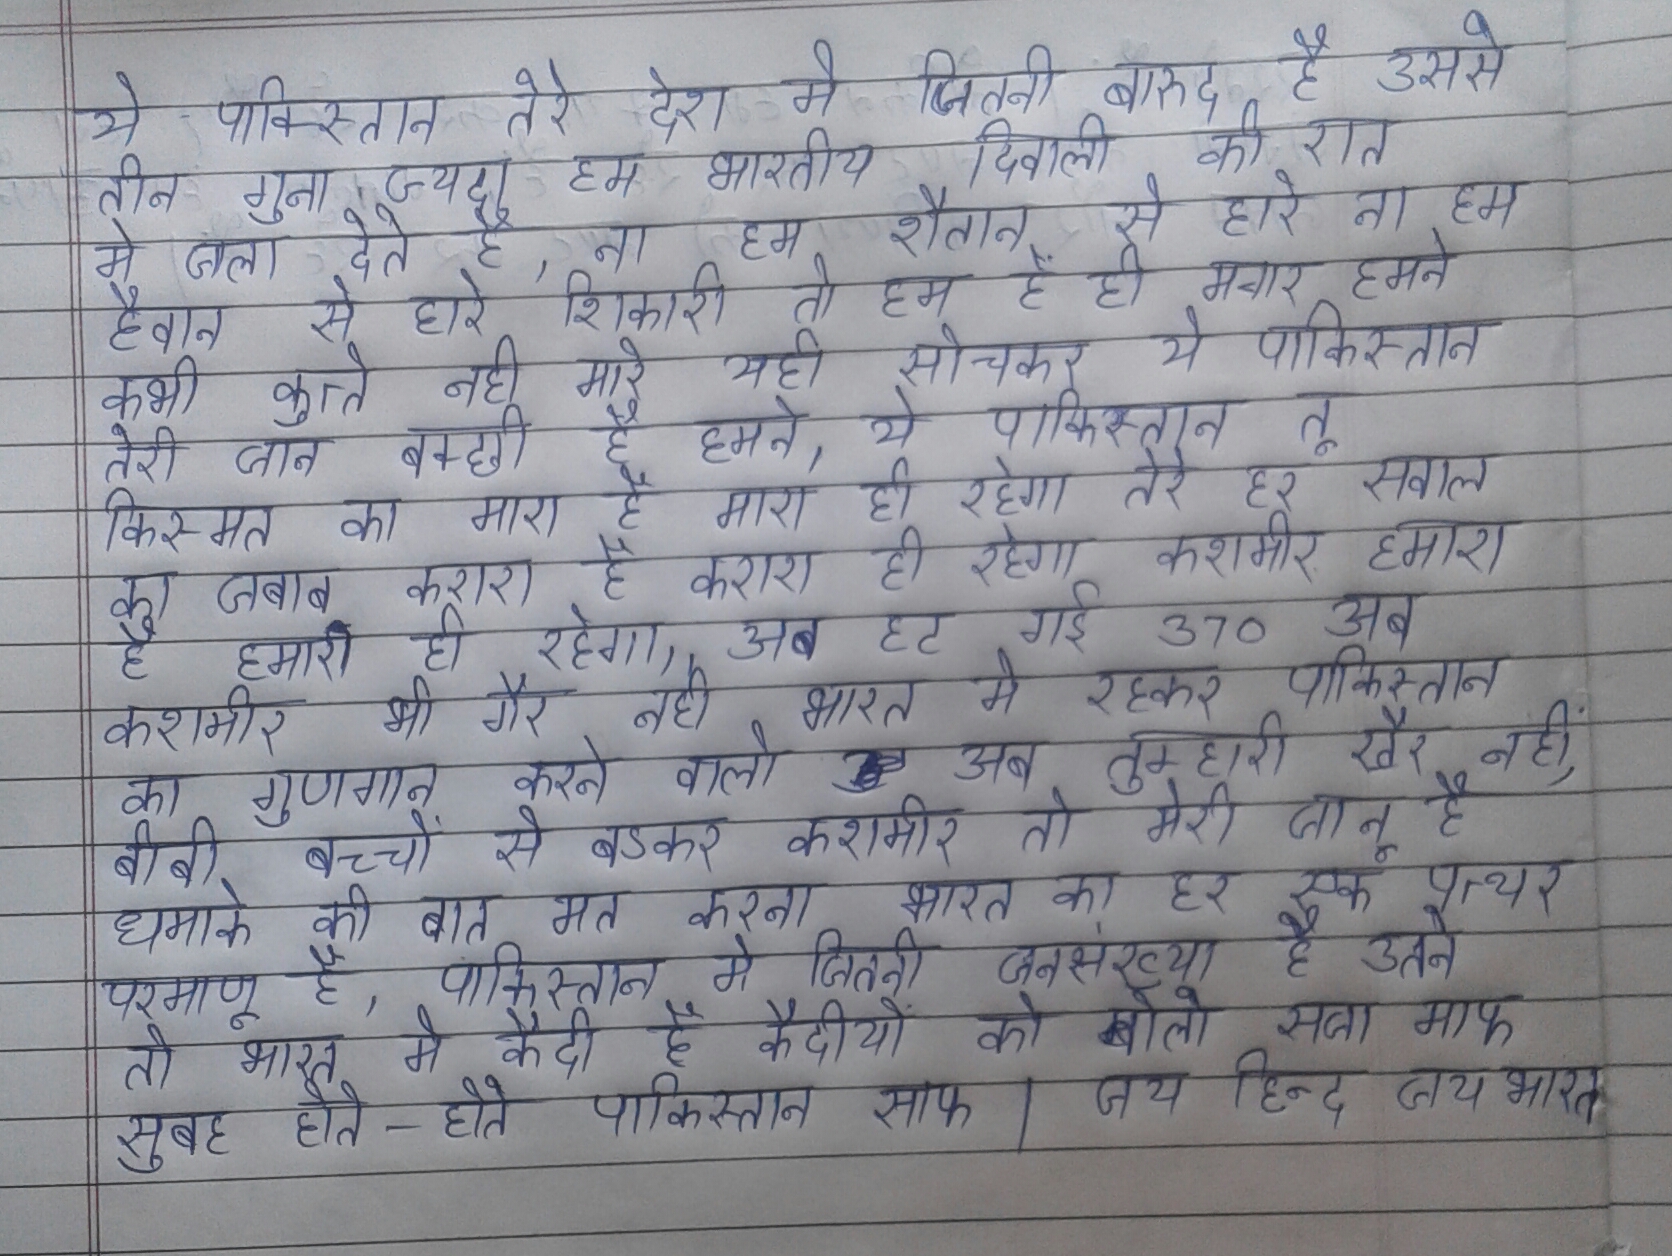 ये पाकिस्तान तेरे देश मे जितनी बारुद है उससे
तीन गुना ज्यदा हम भारतीय दिवाली की रात
मे जला देते है, ना हम शैतान से हारे ना हम
हैवान से हारे शिकारी तो हम हैं ही मगर हमने
कभी कुत्ते नही मारे यही सोचकर ये पाकिस्तान
तेरी जान बक्छी है हमने, ये पाकिस्तान तू
किस्मत का मारा है मारा ही रहेगा तेरे हर सवाल
का जबाब करारा है करारा ही रहेगा कशमीर हमारा
है हमारी ही रहेगा, अब हट गई 370 अब
कशमीर भी गैर नही भारत मे रहकर पाकिस्तान
का गुणगान करने वालो अब तुम्हारी खैर नहीं,
बीबी बच्चों से बडकर कशमीर तो मेरी जानू है
धमाके की बात मत करना भारत का हर एक पत्थर
परमाणू है, पाकिस्तान मे जितनी जनसंख्या है उतने
तो भारत मे कैदी है कैदीयों को बोलो सजा माफ
सुबह होते - होते पाकिस्तान साफ | जय हिन्द जय भारत